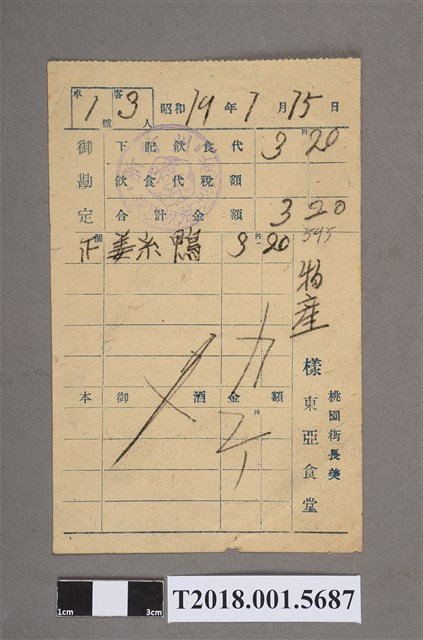 卓 1 號 客 3 人 昭和 19 年 7 月 15 日
御勘定
下記飲食代 3 円 20
飲食代稅額
合計金額 3 20
545
姜糸鴨 3 円 20
物產 樣
本 御酒金額 円
桃園街長美
東亞食堂
1cm 3cm
T2018.001.5687